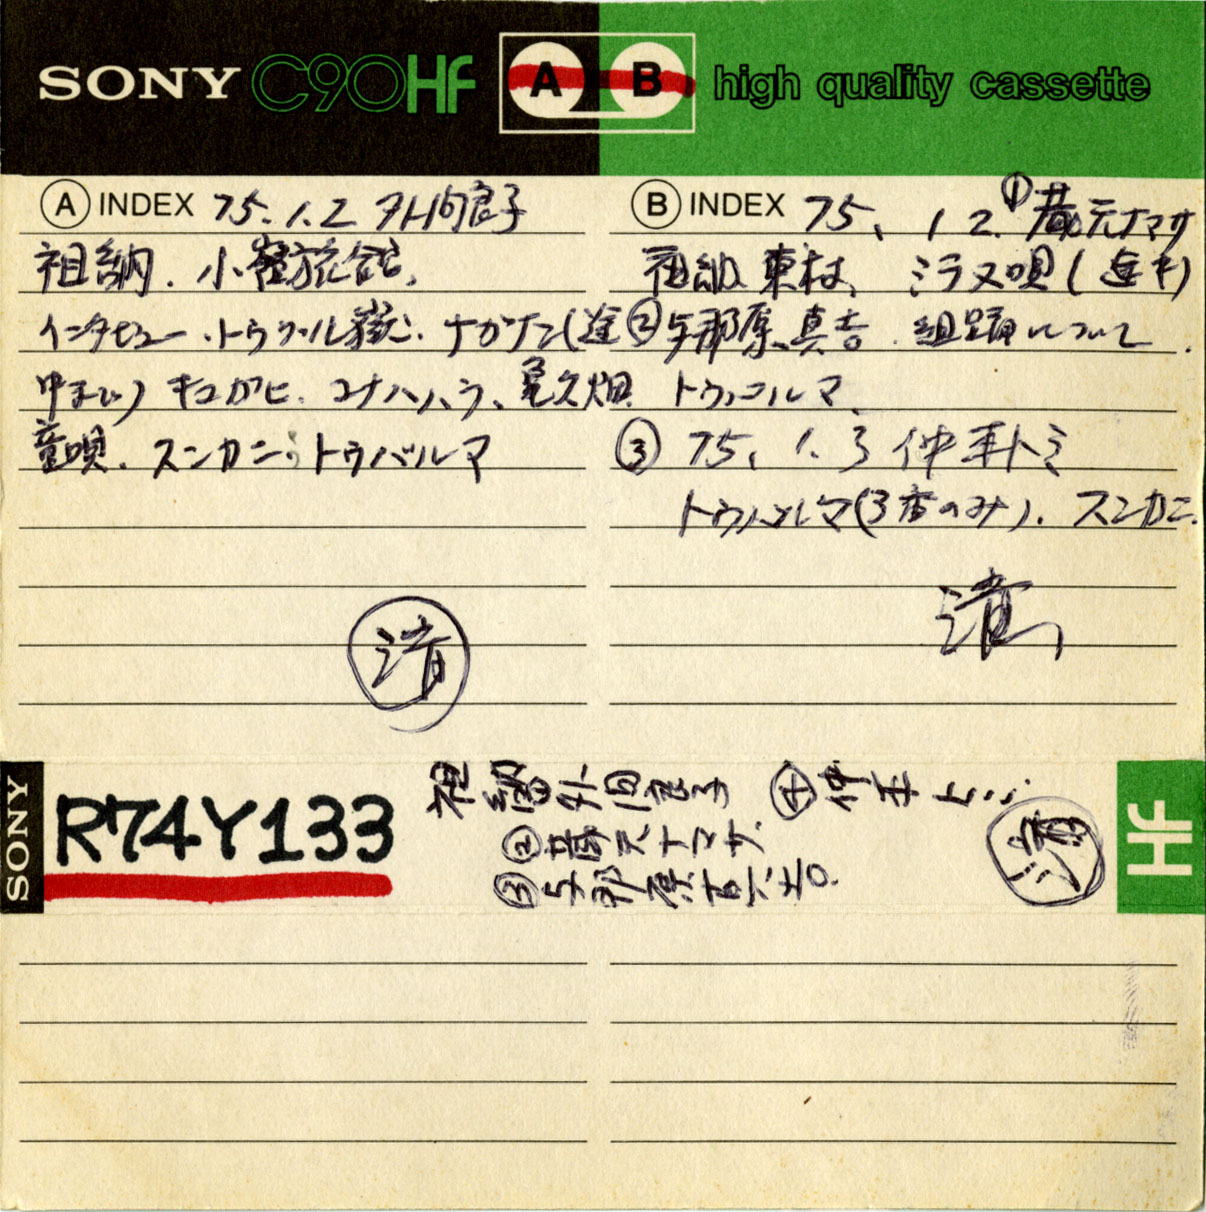 SONY C90HF A B high quality cassette
A INDEX 75.1.2 外間良子
祖納.小嶺旅館.
インタビュー.トゥグル嶽.ナカナン(途
中まで)キユガヒ.コナハハラ、亀久畑
童唄.スンカニ.トゥバルマ
B INDEX 75、1 2. ①蔵元ナマサ
祖納東村、ミラヌ唄(
②与那原真吉.組踊について.
トゥバルマ、
③ 75、1.3 仲本トミ
トゥバルマ(3番のみ).スンカニ.
済
済
SONY
R74Y133
祖納①外間良子 ④仲本トミ.
②蔵元ナマサ.
③与那原真吉.
済
HF